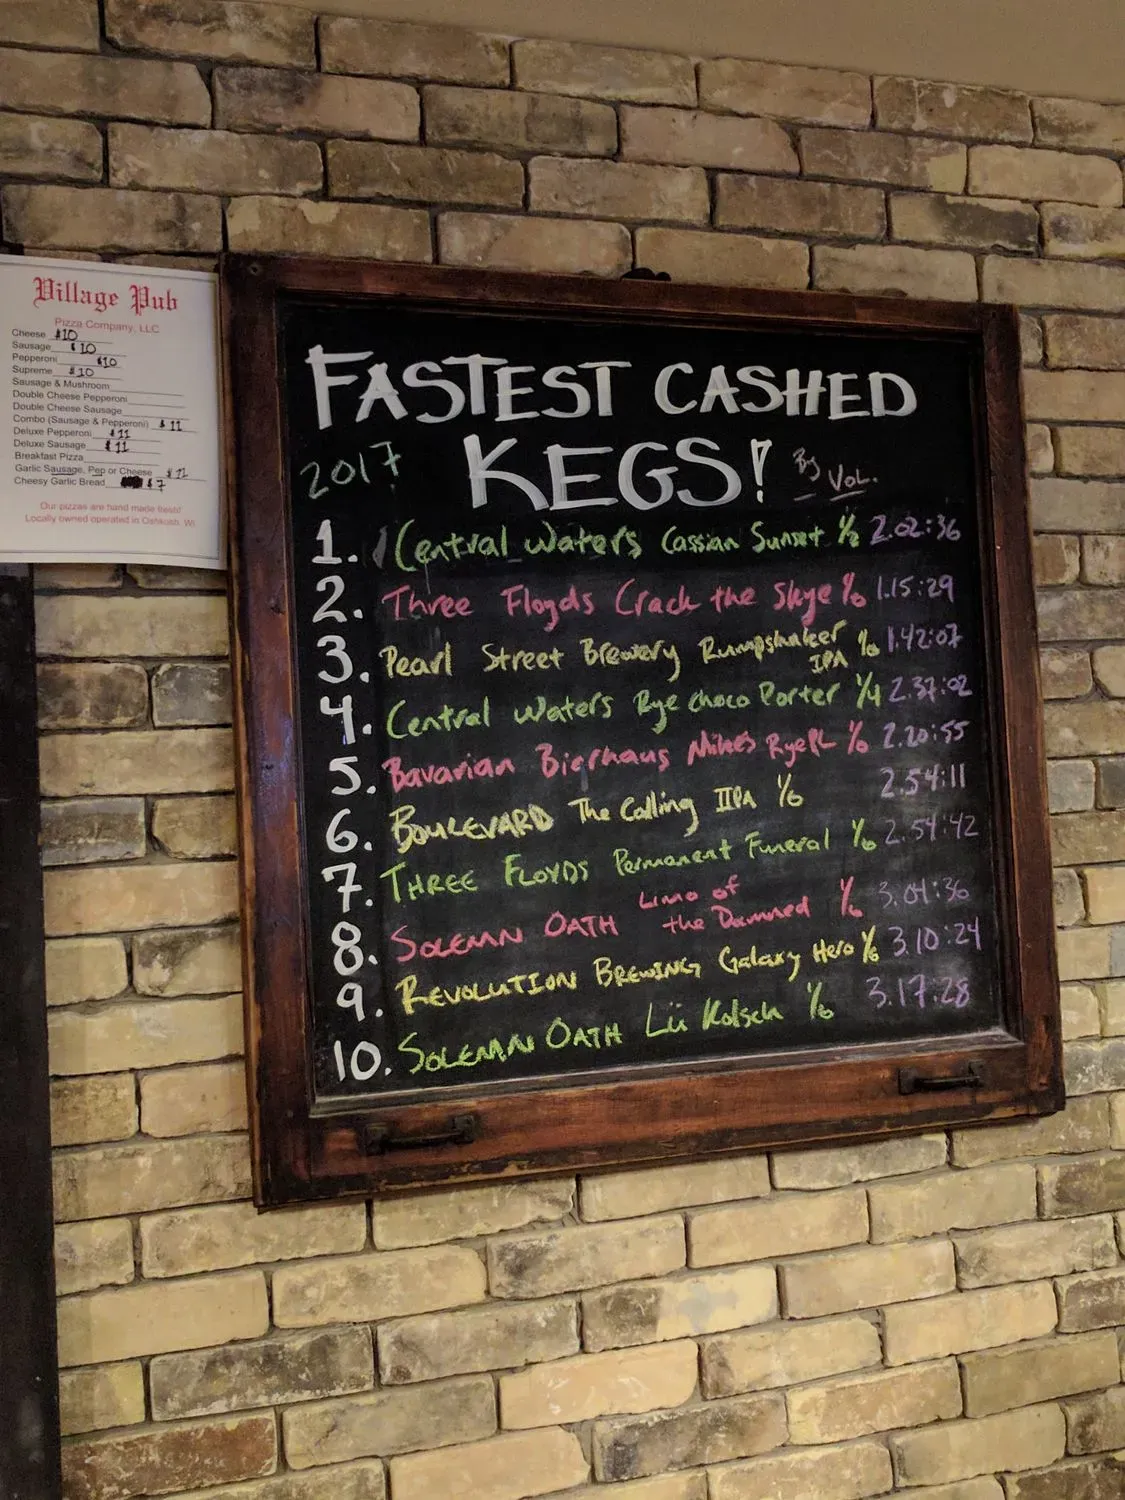 Village Pub
Pizza Company, LLC
Cheese $10
Sausage $10
Pepperoni $10
Supreme $10
Sausage & Mushroom
Double Cheese Pepperoni
Double Cheese Sausage
Combo (Sausage & Pepperoni) $11
Deluxe Pepperoni $11
Deluxe Sausage $11
Breakfast Pizza
Garlic Sausage, Pep or Cheese $12
Cheesy Garlic Bread $7
Our pizzas are hand made fresh!
Locally owned operated in Oshkosh, WI
FASTEST CASHED
2017 KEGS! By VOL.
1. Central Waters Cassian Sunset 1/2 2.02:36
2. Three Floyds Crack the Skye 1/6 1.15:29
3. Pearl Street Brewery Rumpshaker
IPA 1/6 1.42:07
4. Central Waters Rye Choco Porter 1/4 2.37:02
5. Bavarian Bierhaus Mike's RyePL 1/6 2.20:55
6. BOULEVARD The Calling IIPA 1/6 2.54:11
7. THREE FLOYDS Permanent Funeral 1/6 2.54:42
8. SOLEMN OATH Limo of
the Damned 1/6 3.04:36
9. REVOLUTION BREWING Galaxy Hero 1/6 3.10:24
10. SOLEMN OATH Lü Kolsch 1/6 3.17:28